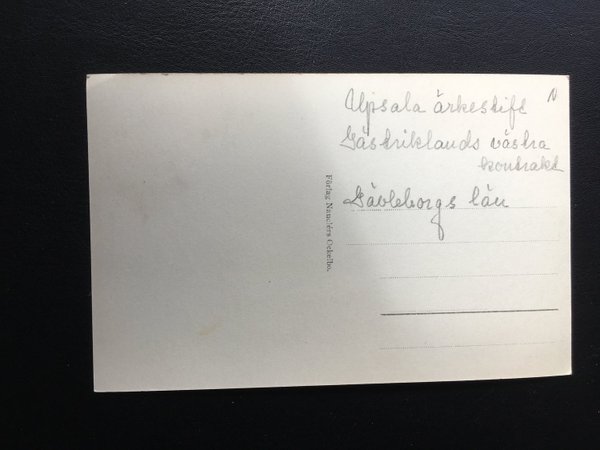 Upsala ärkestift
Gästriklands västra
kontrakt
Gävleborgs län
Förlag Ockelbo.